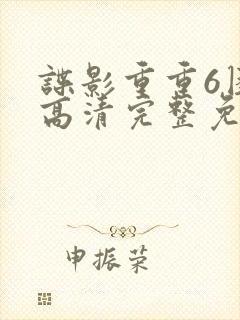 諜影重重6
高清完整免
申振荣